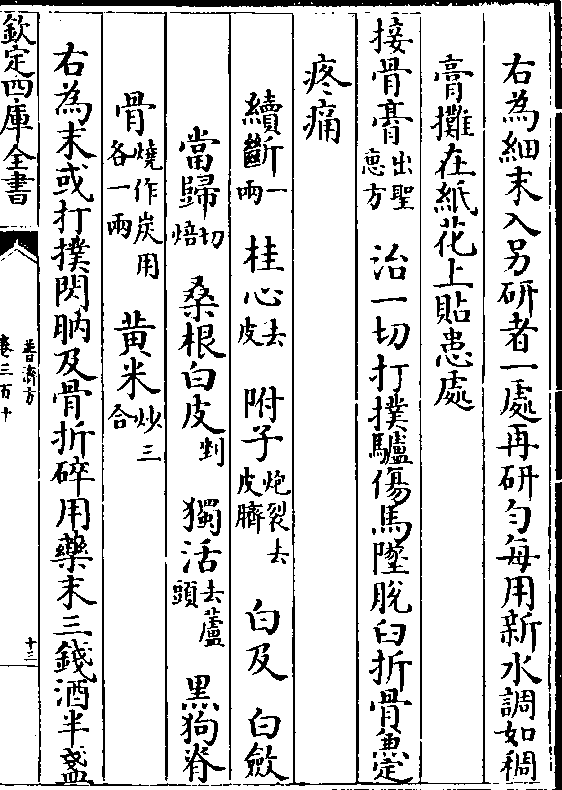 右為細末入另研者一處再研勻每用新水調如稠
膏攤在紙花上貼患處
接骨膏出聖惠方 治一切打撲驢傷馬墜脫臼折骨兼定
疼痛
續斷一兩 桂心去皮 附子炮裂去皮臍 白及 白斂
當歸切焙 桑根白皮剉 獨活去蘆頭 黑狗脊
骨燒作炭用各一兩 黄米炒三合
右為末或打撲閃肭及骨折碎用藥末三錢酒半盞
欽定四庫全書 普濟方 卷三百十 十三